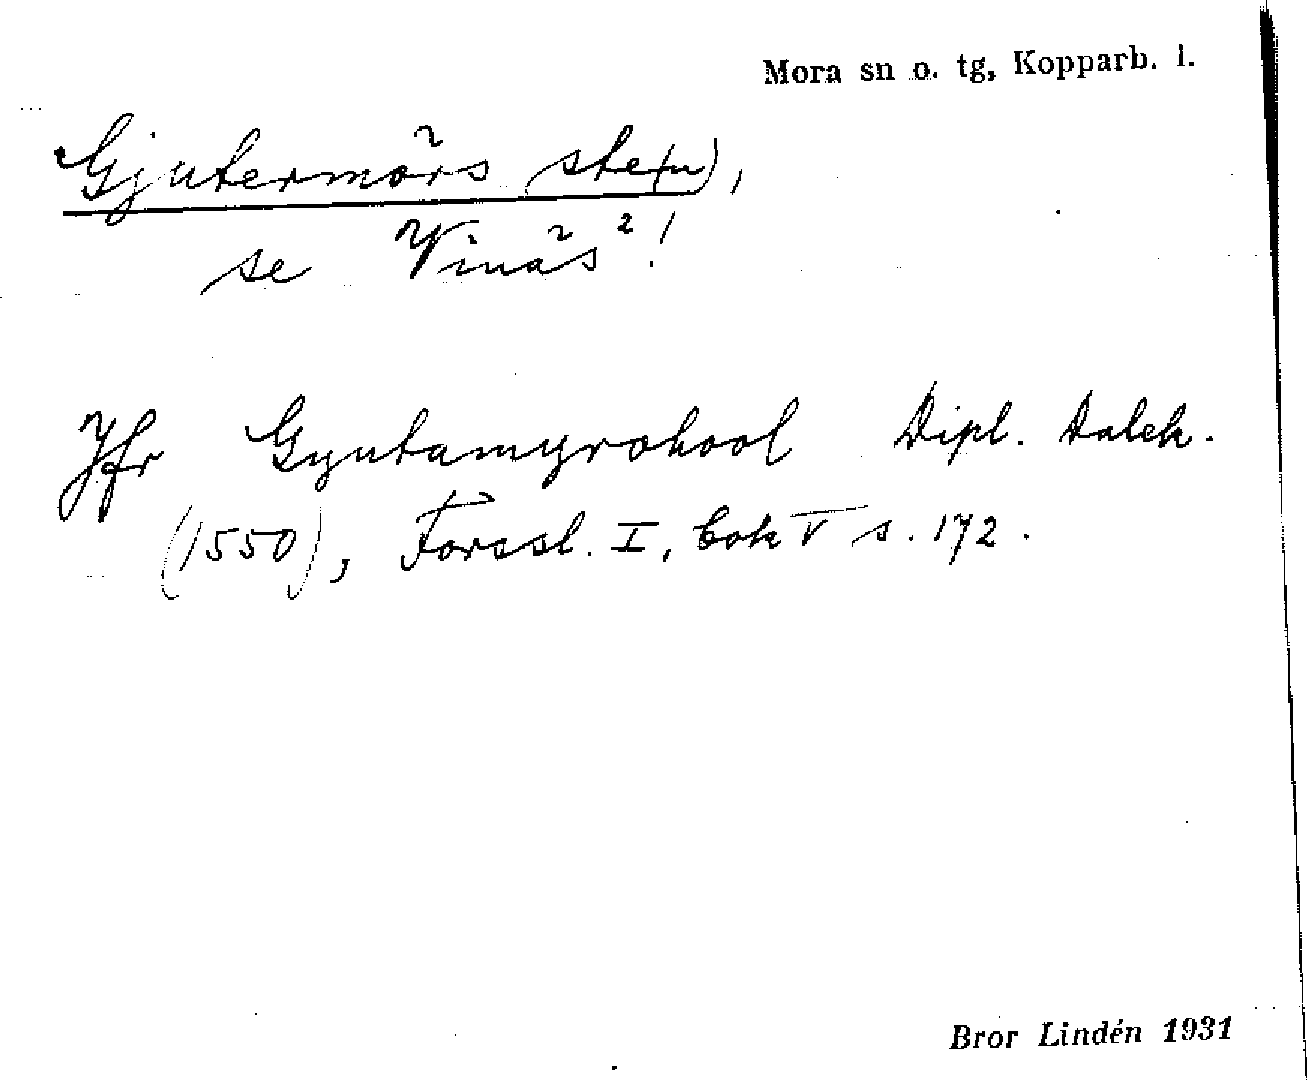 Mora sn o. tg, Kopparb. l.
Gjutermörs ste(n),
se Vinäs²!
Jfr Gyutamyrohool Dipl. Dalek.
(1550), Forssl. I, bok V s. 172.
Bror Lindén 1931